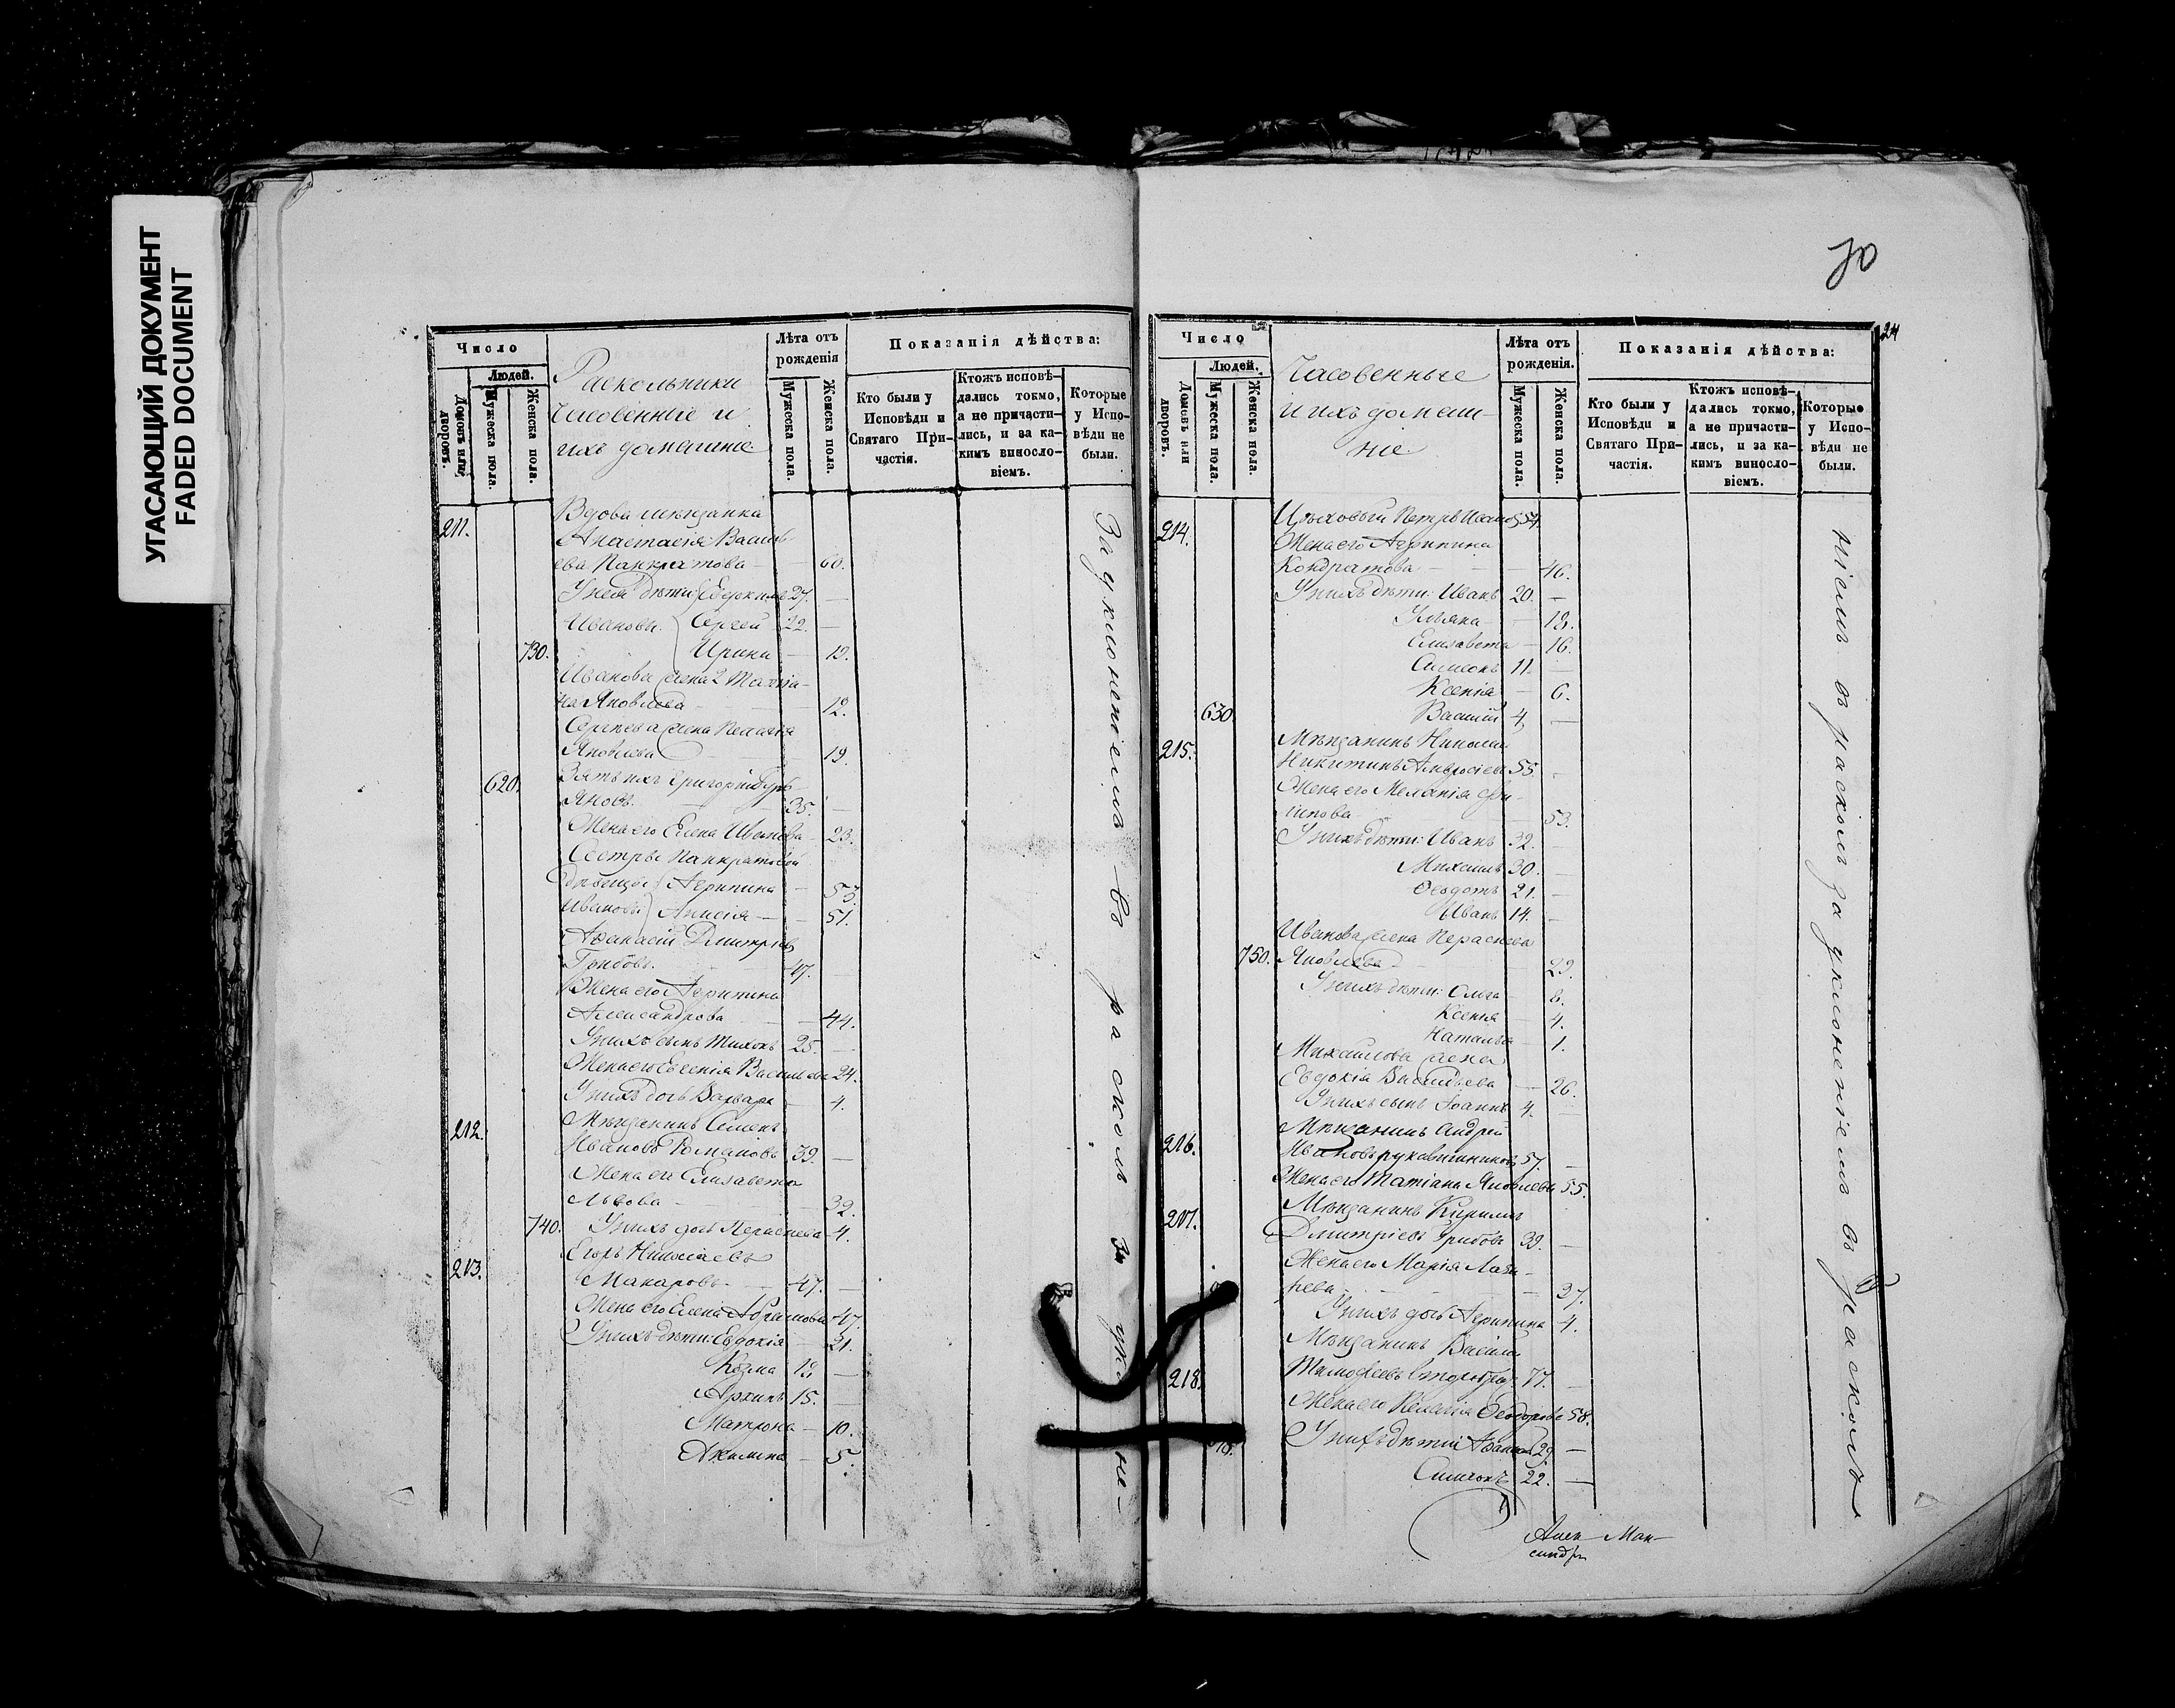 УГАСАЮЩИЙ ДОКУМЕНТ
FADED DOCUMENT
Число
Людей.
Домовъ или дворовъ.
Мужеска пола.
Женска пола.
Раскольники
Часовенные и
ихъ домашніе.
Лѣта отъ рожденія
Мужеска пола.
Женска пола.
Показанія дѣйства:
Кто были у Исповѣди и Святаго При-частія.
Ктожъ исповѣ-дались токмо, а не причасти-лись, и за ка-кимъ винословіемъ.
Которые у Испо-вѣди не были.
211. Вдова мѣщанка
Анастасія Василь-
ева Панкратова — — 60.
У нея дѣти: 27. —
Ивановы. Сергей 22. —
730. Ирина — 19.
Иванова жена 2 Татіа-
на Яковлева — — 12.
Сергѣева жена Пелагея
Яковлева — 19.
620. Зять ихъ Григорій
35. —
Жена его Елена Иванова 23.
Сестры Панкратовой
дѣвицы Агрипина — 53.
Ивановы Анисія — — 51.
Афанасій Дмитріевъ
Грибовъ. 47. —
Жена его Агрипина
Александрова — — 44.
У нихъ сынъ Тихонъ 25. —
Жена его Евгенія Васильева 24.
У нихъ дочь Варвара — 4.
212. Мѣщанинъ Семенъ
Ивановъ Романовъ 39. —
Жена его Елизавета
Львова — — 39.
740. У нихъ дочь Параскева 4.
213. Егоръ Николаевъ
Макаровъ. — 47. —
Жена его Елена Абрамова 47.
У нихъ дѣти: Евдокія — 21.
Козма 18. —
Архипъ 15. —
Матрона — 10.
Акилина — 5.
За уклоненіемъ въ расколъ За укло не-
70
24
Число
Людей.
Домовъ или дворовъ.
Мужеска пола.
Женска пола.
Часовенные
и ихъ домаш-
ніе.
Лѣта отъ рожденія.
Мужеска пола.
Женска пола.
Показанія дѣйства:
Кто были у Исповѣди и Святаго При-частія.
Ктожъ исповѣ-дались токмо, а не причасти-лись, и за ка-кимъ винословіемъ.
Которые у Испо-вѣди не были.
214. Цѣховый Петръ 54.
Жена его Агрипина
Кондратова — — 46.
У нихъ дѣти: Иванъ 20. —
Ульяна — 18.
Елизавета — 16.
Симеонъ 11. —
Ксенія — 6.
630. Василій 4. —
215. Мѣщанинъ Николай
Никитинъ Амвросіевъ 55. —
Жена его Меланія Фи-
липова — 53.
У нихъ дѣти: Иванъ 32. —
Михаилъ 30. —
Феодотъ 21. —
Иванъ 14. —
Иванова жена Параскева
750. Яковлева — — 29.
У нихъ дѣти: Ольга — 8.
Ксенія — 4.
Наталья — 1.
Михаилова жена
Евдокія Васильева — 26.
У нихъ сынъ Іоаннъ 4. —
216. Мѣщанинъ Андрей
Ивановъ Рукавишниковъ 57. —
Жена его Татіана Яковлева 55.
217. Мѣщанинъ Кирилъ
Дмитріевъ Грибовъ 39. —
Жена его Марія Лаза-
рева — — 37.
У нихъ дочь Агрипина 4.
Мѣщанинъ Василій
218. Тимофеевъ 77. —
Жена его Феодорова 58.
У нихъ дѣти: 29. —
Симеонъ 22. —
ніемъ въ расколъ за уклоненіемъ въ расколъ